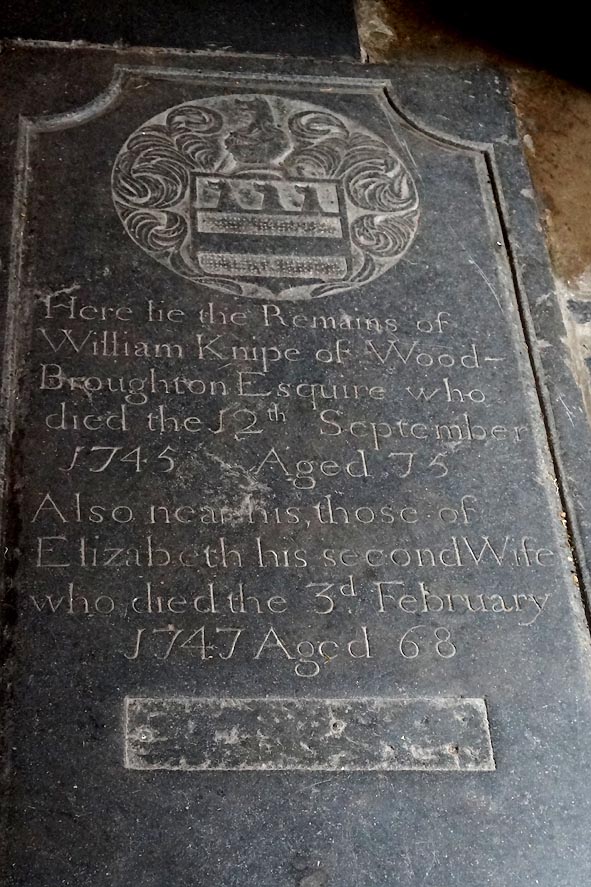 Here lie the Remains of
William Knipe of Wood-
Broughton Esquire who
died the 12th September
1745 Aged 75
Also near his, those of
Elizabeth his second Wife
who died the 3d. February
1747 Aged 68